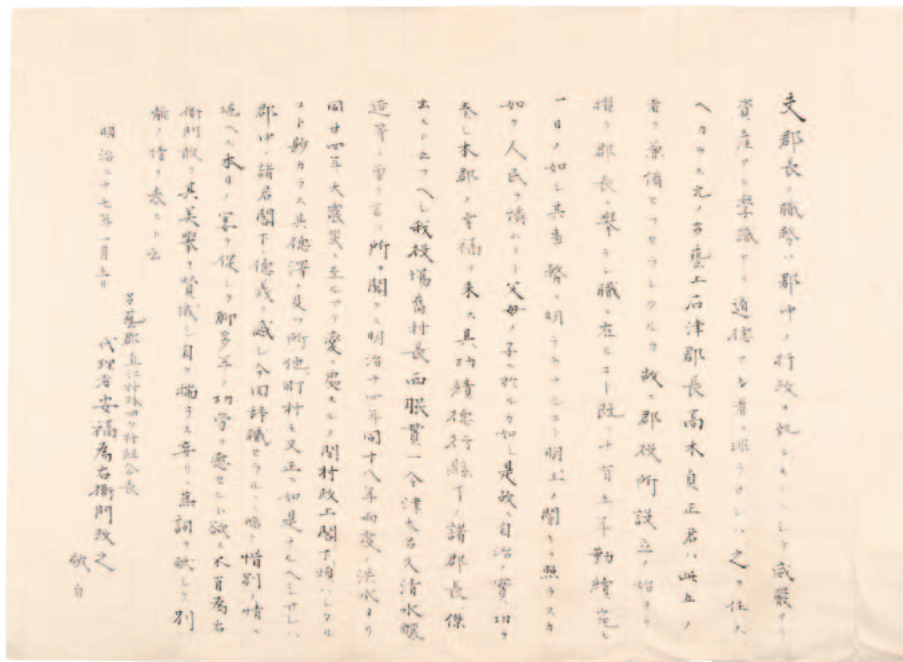 夫郡長ノ職務ハ郡中ノ行政ヲ ニシテ威嚴アリ
資産アリ學識アリ道徳アル者ニ非ラサレハ之ヲ任ス
ヘカラス元 多藝上石津郡長高木貞正君ハ此五ノ
者ヲ兼備セ 故ニ郡役所設立ノ始ヨリ
撰ヲ郡長ニ擧ラレ職ニ在ルコト既ニ十有五年勤績宛モ
一日ノ如シ其 明 ナルコト明 ノ闇ヲ照ラス
如ク人民 父母ノ子ニ於ルカ如シ是故ニ自治ノ實功ヲ
奏シ本郡ノ幸福ヲ来ス其功績徳行縣下ノ諸郡長ノ傑
出スト云フヘシ我役場舊村長西脇貫一今津太 清水
等ノ 所ヲ聞クニ明治十四年同十八年両度ノ洪水ヨリ
同廿四年大震災ニ至ルマテ 變ニ處スルノ間村政上閣下ヲ煩ハシタル
コト尠カラス其徳澤ノ及フ所他町村モ又正ニ如是ナルヘシサレハ
郡中ノ諸君閣下ノ徳義ニ感シ今回辞職セラルヽニ 惜別ノ情ニ
堪ヘス本日ノ宴ヲ催シテ聊多年ノ功労ヲ慰セント欲ス不肖為右
衛門 其美擧ヲ賛成シ自ラ揣ラス妄リニ蕪詞ヲ 別
離ノ情ヲ表スト云
明治二十七年一月五日
多藝郡直江村外四ケ村組合長
代理者安福為右衛門政之
敬白